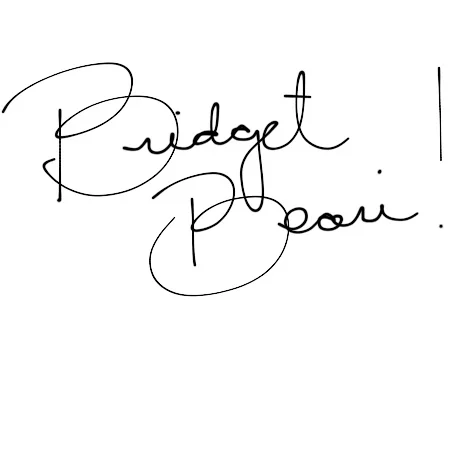 Bridget
Beari!